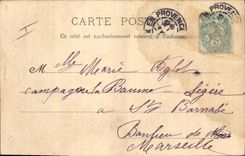 CARTE POSTALE
Ce côté est exclusivement réservé à l'adresse
EN PROVENCE
PROVENCE
Mlle Marie
campagne la Baume Légère
à St Barnabé
Banlieu de
Marseille